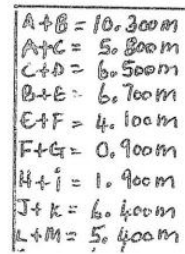 A+B = 10.300m
A+C = 5.800m
C+D = 6.500m
B+E = 6.700m
E+F = 4.100m
F+G = 0.900m
H+i = 1.900m
J+K = 6.400m
L+M = 5.400m